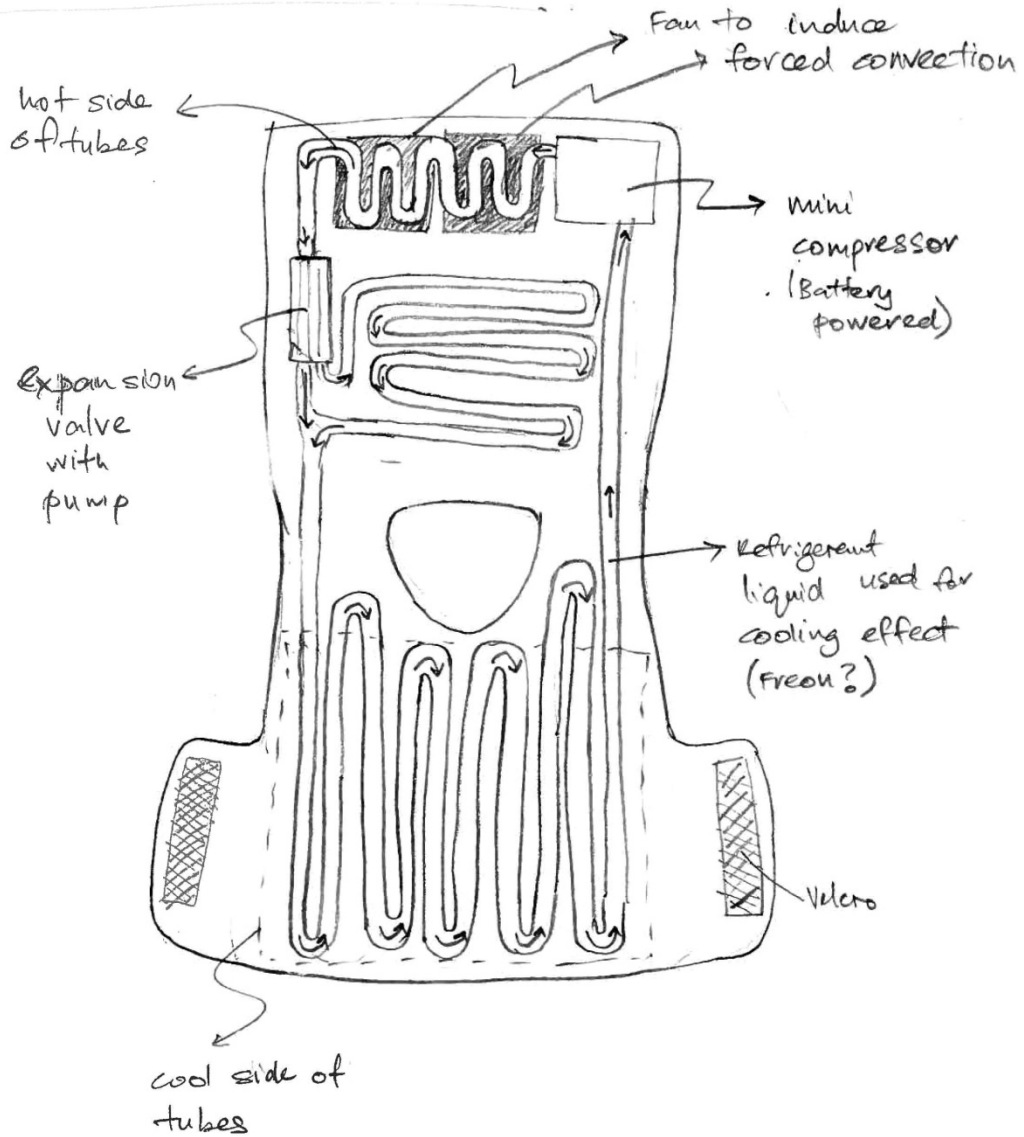 Fan to induce
forced convection
hot side
of tubes
mini
compressor
(Battery
powered)
expansion
valve
with
pump
Refrigerant
liquid used for
cooling effect
(Freon?)
Velcro
cool side of
tubes